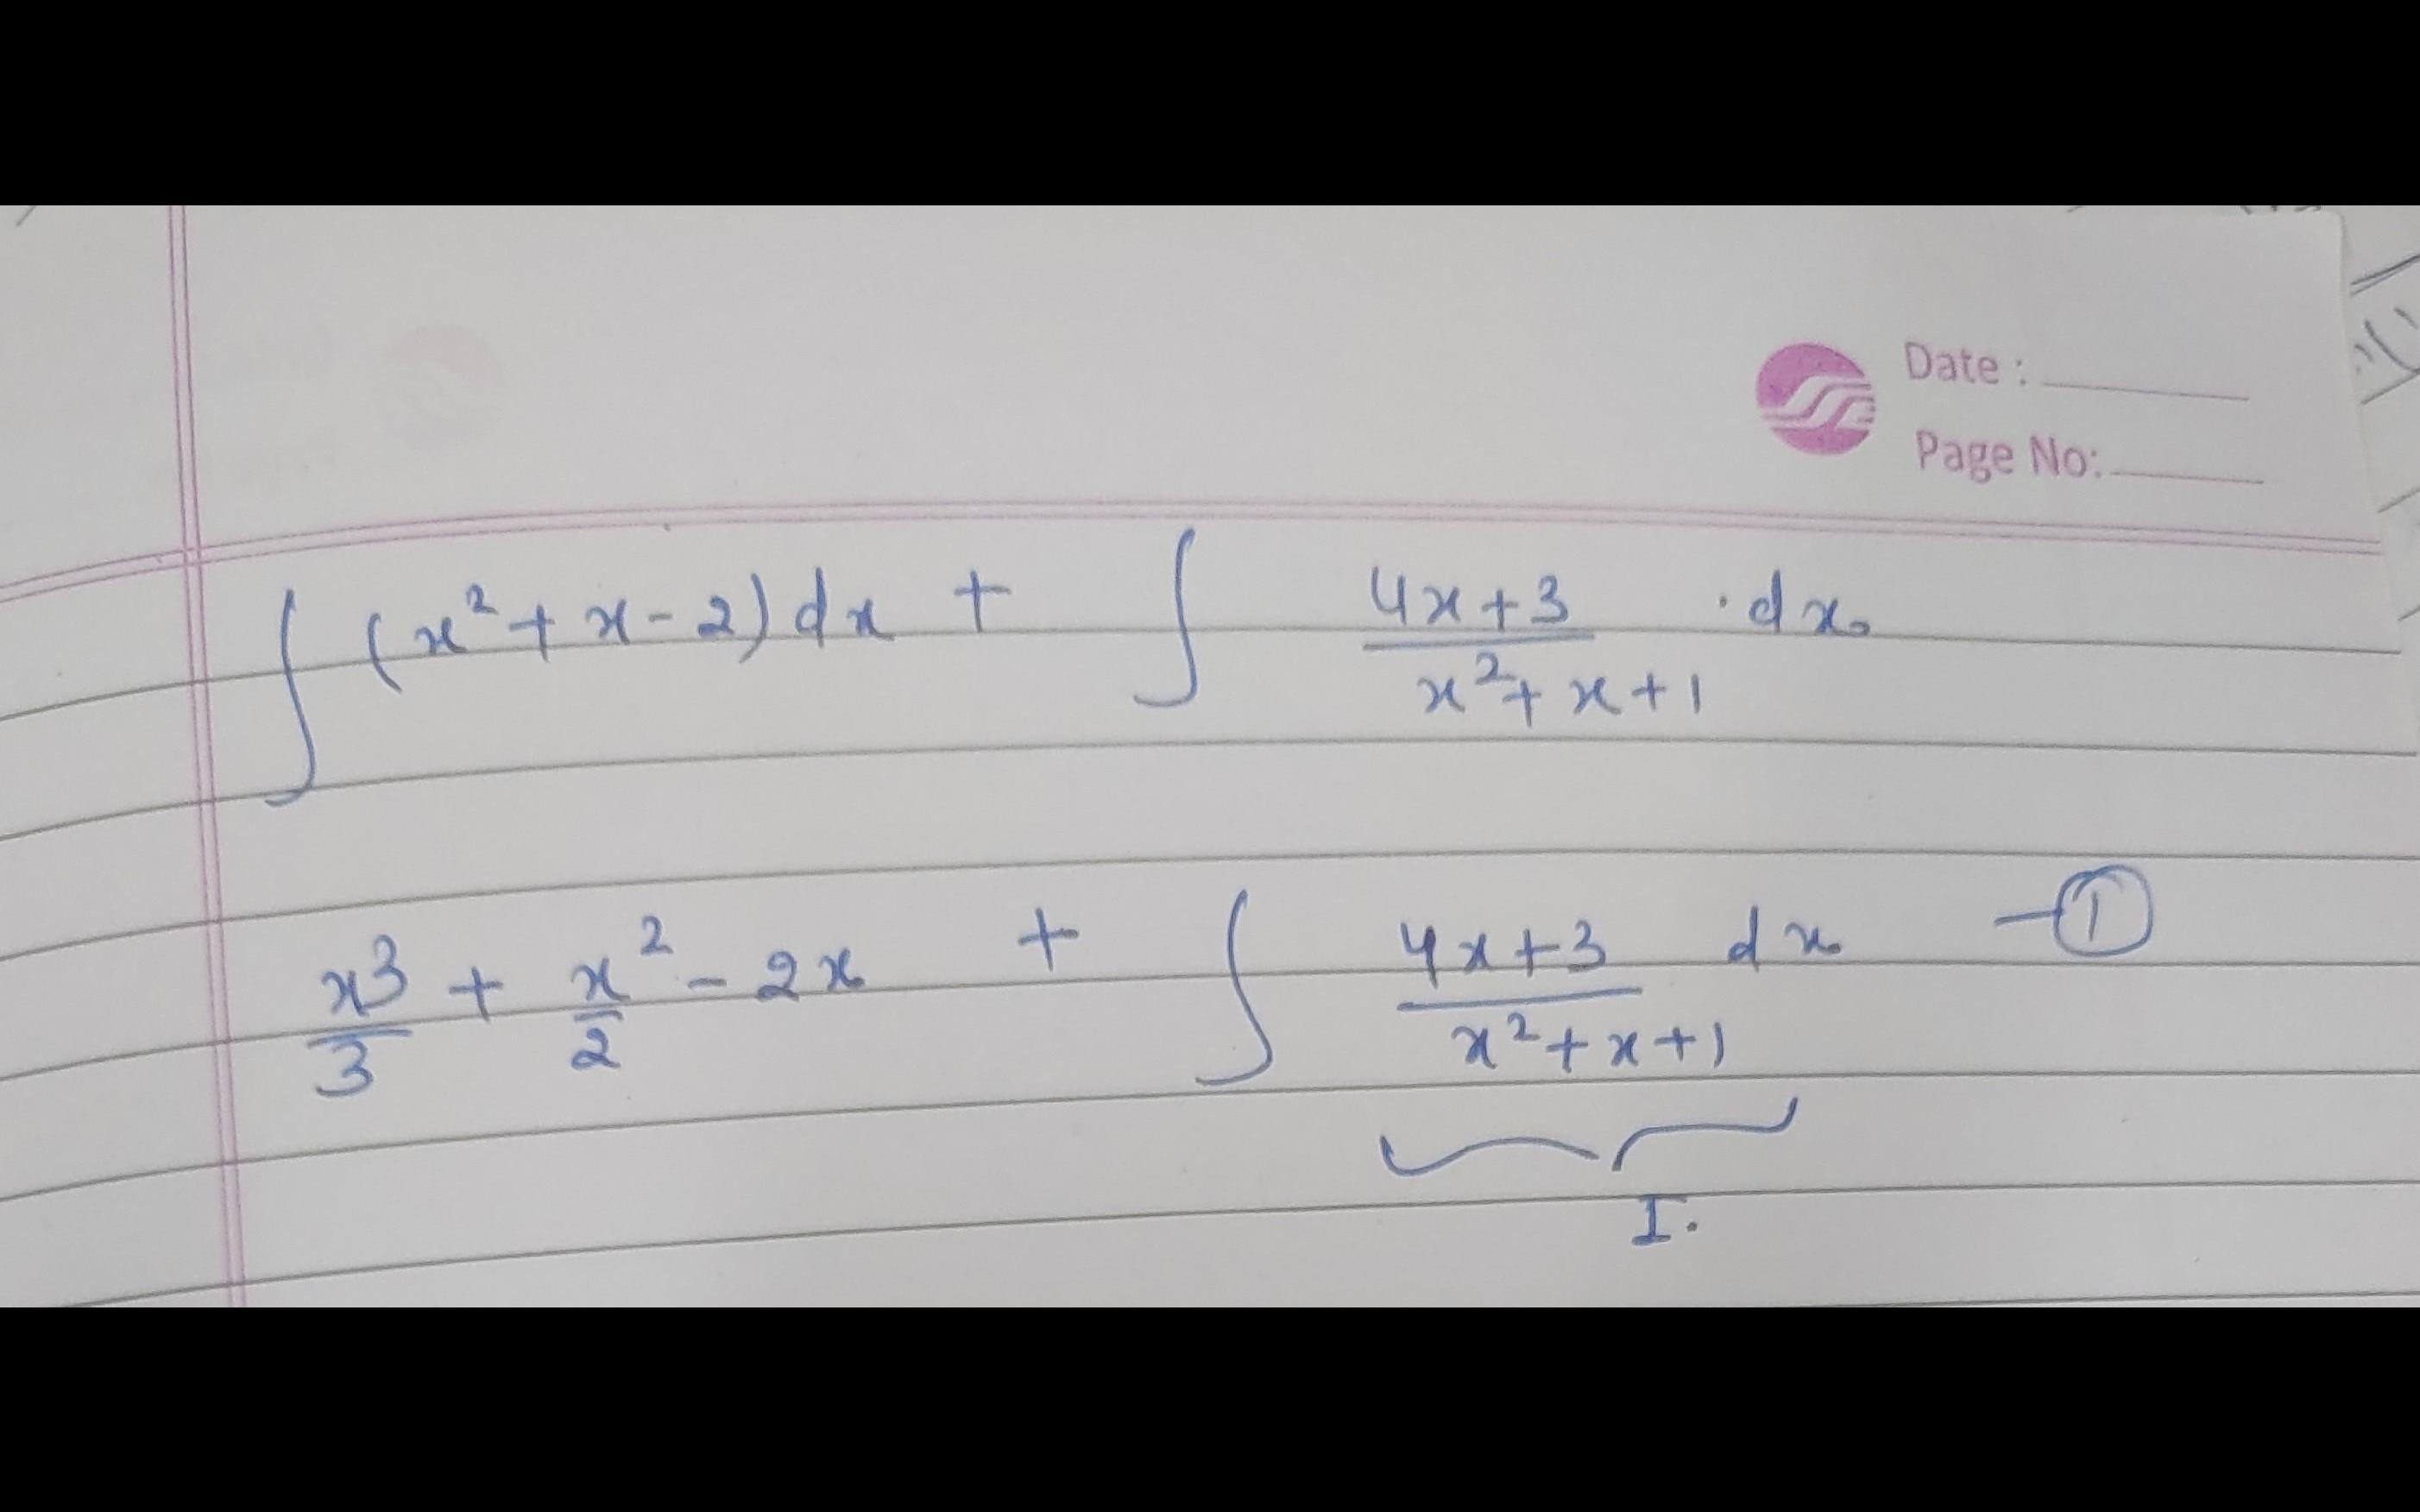 Date :
Page No:
∫ (x² + x - 2) dx + ∫ (4x+3)/(x² + x + 1) · dx
x³/3 + x²/2 - 2x + ∫ (4x+3)/(x² + x + 1) dx — ①
I.